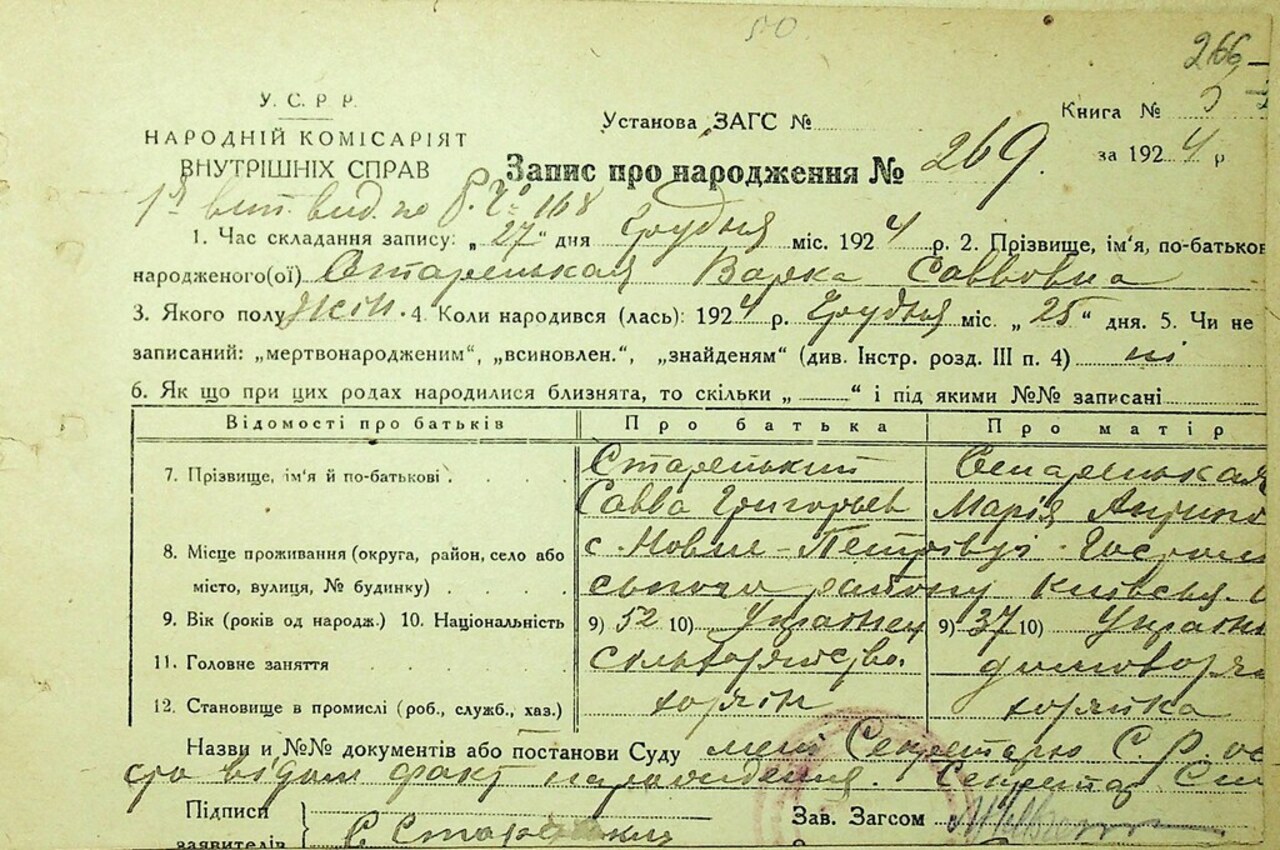 50
266
У. С. Р. Р.
НАРОДНІЙ КОМІСАРІЯТ
ВНУТРІШНІХ СПРАВ
Установа ЗАГС №
Книга № 3
за 1924 р
Запис про народження № 269.
№ 168
1. Час складання запису: „27“ дня Грудня міс. 1924 р. 2. Прізвище, ім'я, по-батьков
народженого(ої) Старецькая Варка Саввовна
3. Якого полу жін. 4. Коли народився (лась): 1924 р. Грудня міс. „25“ дня. 5. Чи не
записаний: „мертвонародженим“, „всиновлен.“, „знайденям“ (див. Інстр. розд. III п. 4) ні
6. Як що при цих родах народилися близнята, то скільки „ “ і під якими №№ записані
Відомості про батьків Про батька Про матір
7. Прізвище, ім'я й по-батькові Старецький Старецькая
Савва Григорьев Марія
8. Місце проживання (округа, район, село або с. Нових-Петрівці
місто, вулиця, № будинку) району Київськ.
9. Вік (років од народж.) 10. Національність 9) 52 10) Украінец 9) 37 10) Україн
11. Головне заняття сільхозяйство.
12. Становище в промислі (роб., служб., хаз.) хозяін хозяйка
Назви и №№ документів або постанови Суду мені Секретарю С. Р.
відом факт народження. Секретар
Підписи
заявителів С Старецький
Зав. Загсом